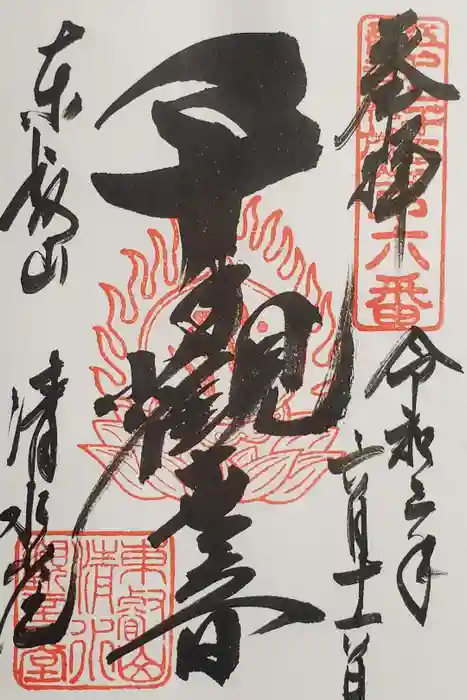 奉拝
第六番
令和三年
六月十一日
千手観音
東叡山
清水堂
東叡山
清水
観音堂